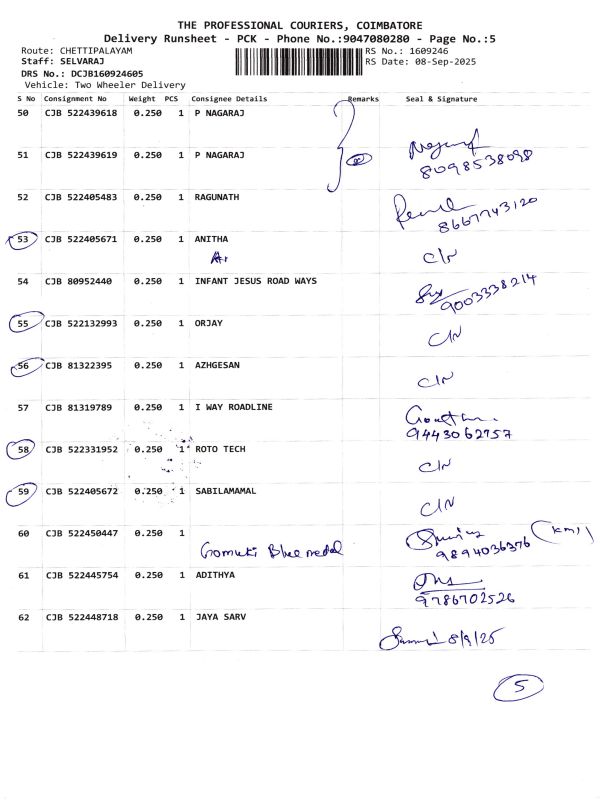 THE PROFESSIONAL COURIERS, COIMBATORE
Delivery Runsheet - PCK - Phone No.:9047080280 - Page No.:5
Route: CHETTIPALAYAM RS No.: 1609246
Staff: SELVARAJ RS Date: 08-Sep-2025
DRS No.: DCJB160924605
Vehicle: Two Wheeler Delivery
S No Consignment No Weight PCS Consignee Details Remarks Seal & Signature
50 CJB 522439618 0.250 1 P NAGARAJ
51 CJB 522439619 0.250 1 P NAGARAJ
8098538098
52 CJB 522405483 0.250 1 RAGUNATH
8667743120
53 CJB 522405671 0.250 1 ANITHA
C/N
54 CJB 80952440 0.250 1 INFANT JESUS ROAD WAYS
9003338214
55 CJB 522132993 0.250 1 ORJAY
C/N
56 CJB 81322395 0.250 1 AZHGESAN
C/N
57 CJB 81319789 0.250 1 I WAY ROADLINE
9443062757
58 CJB 522331952 0.250 1 ROTO TECH
C/N
59 CJB 522405672 0.250 1 SABILAMAMAL
C/N
60 CJB 522450447 0.250 1
Gomuki Bluemedal 9894036376
61 CJB 522445754 0.250 1 ADITHYA
9786702526
62 CJB 522448718 0.250 1 JAYA SARV
8/9/25
5